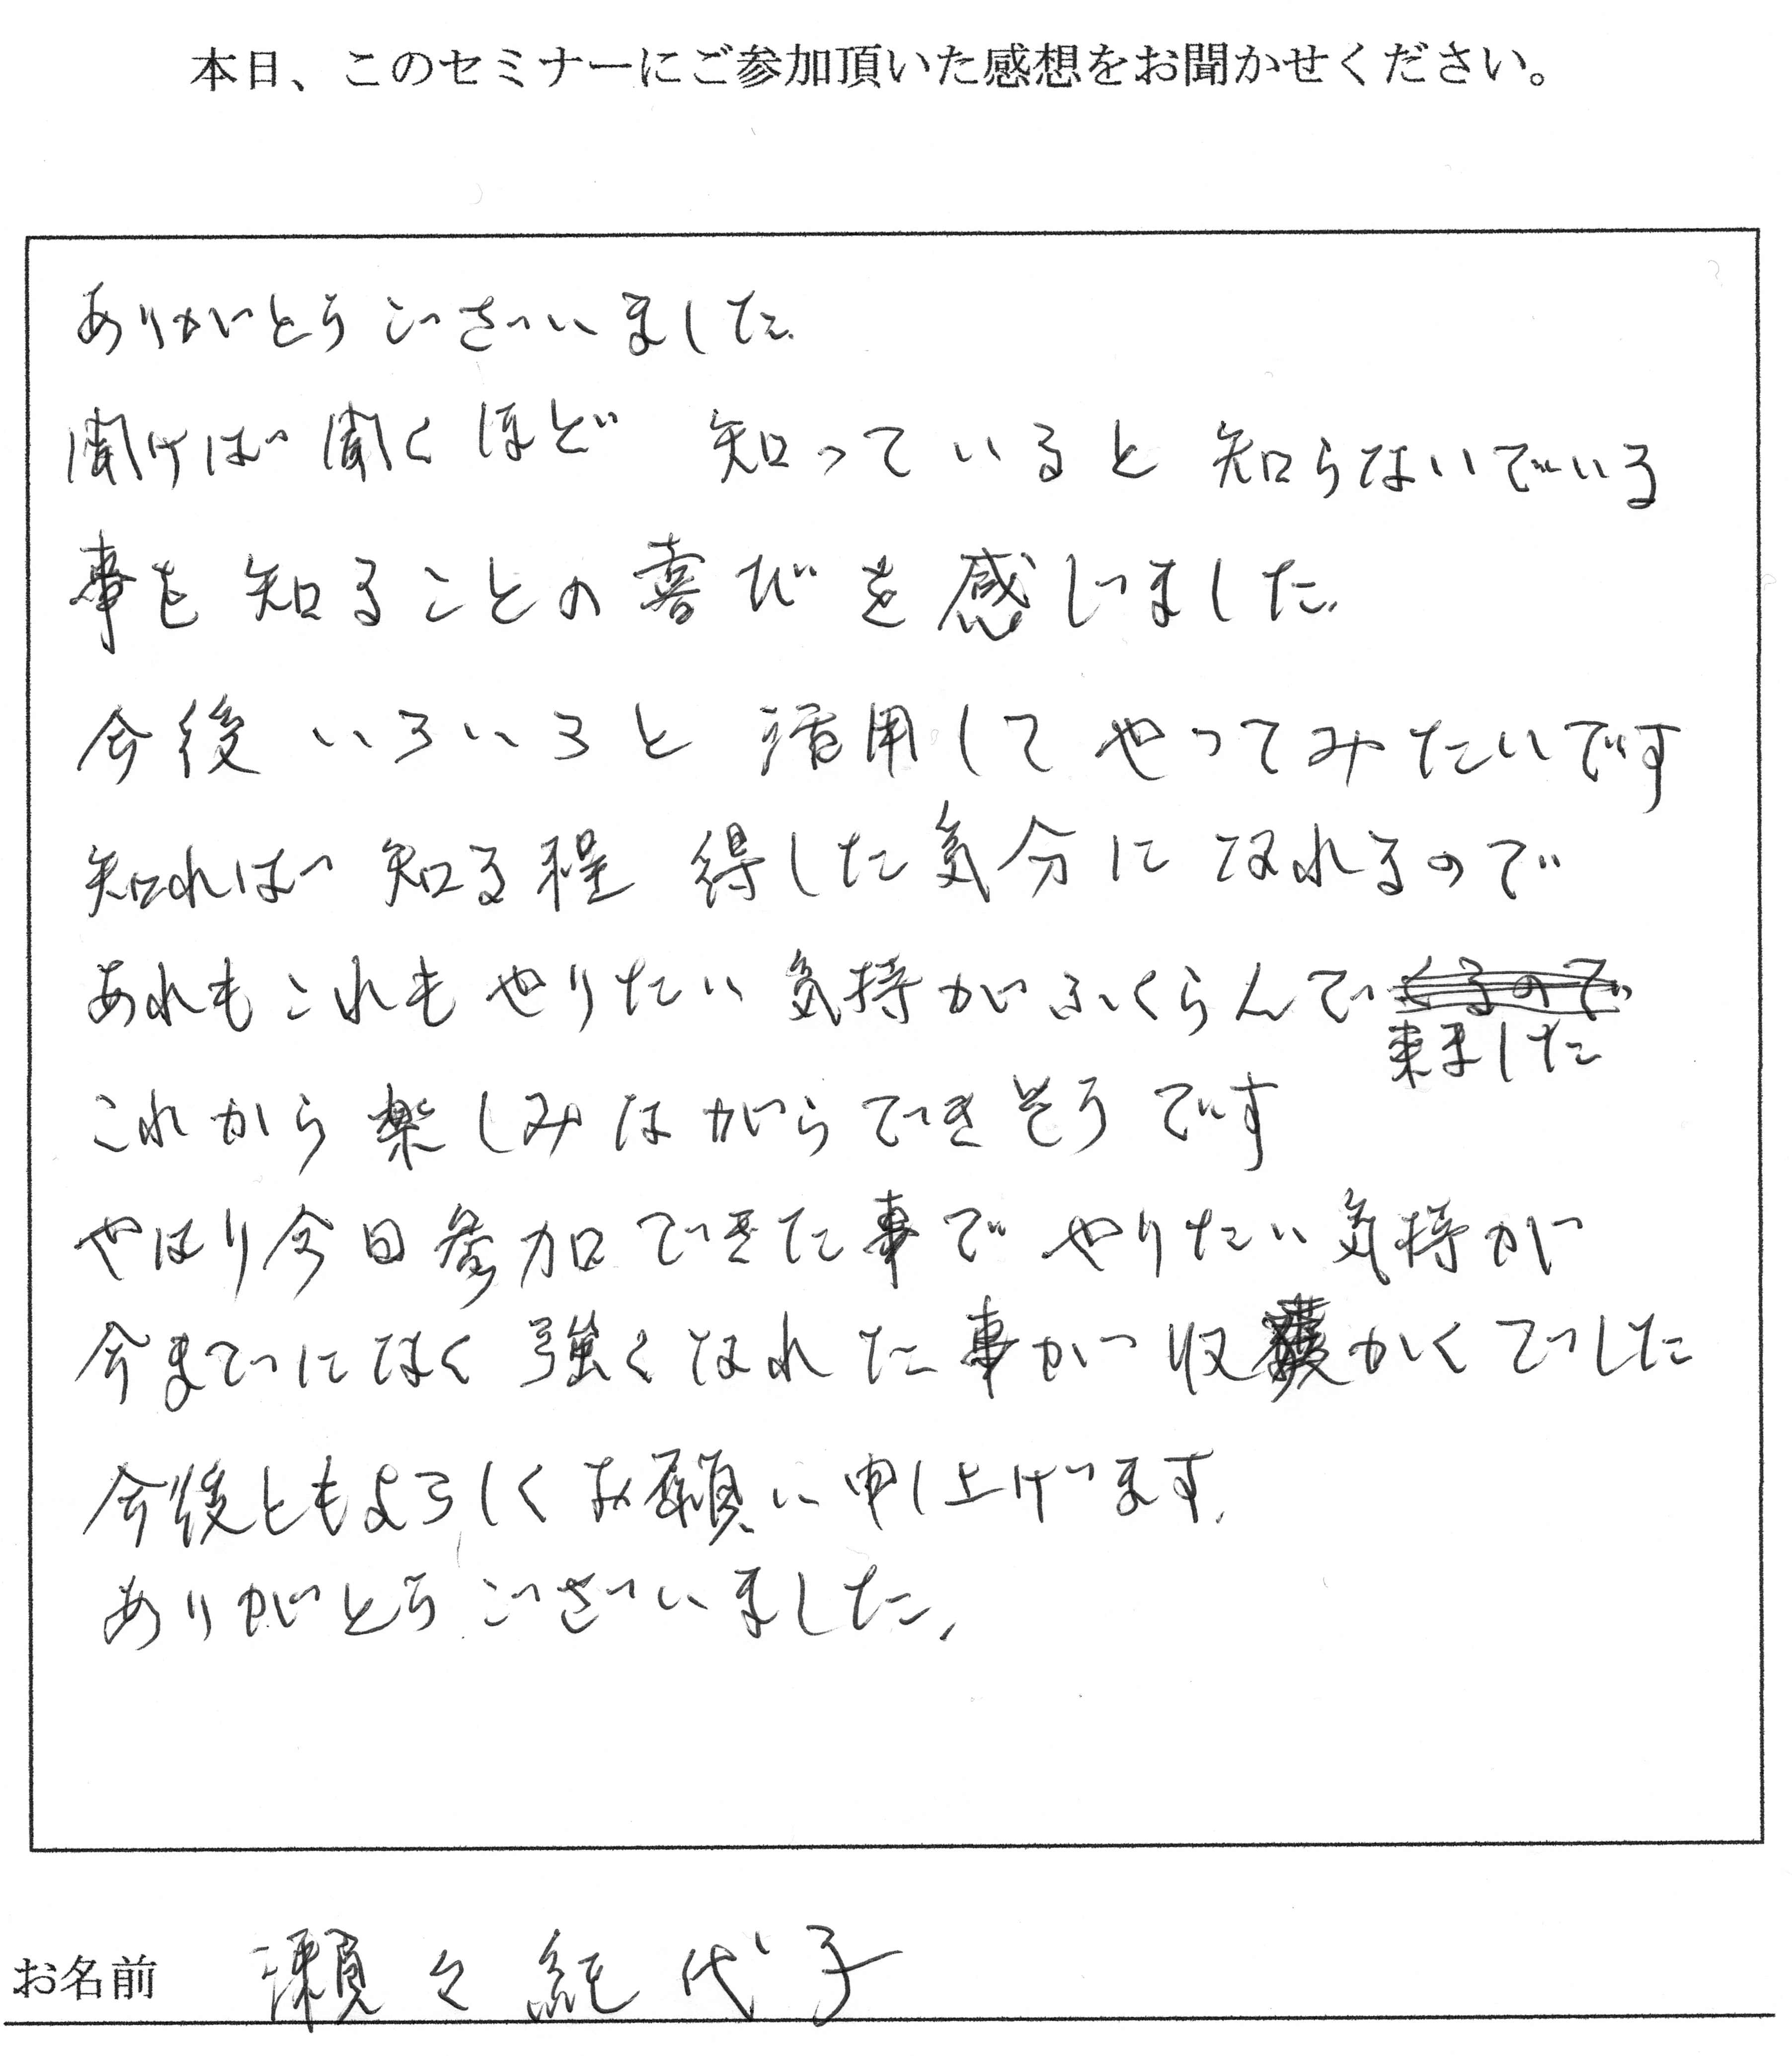 本日、このセミナーにご参加頂いた感想をお聞かせください。
ありがとうございました。
聞けば聞くほど 知っていると知らないでいる
事を知ることの喜びを感じました。
今後いろいろと活用してやってみたいです
知れば知る程 得した気分になれるので
あれもこれもやりたい気持がふくらんで くるので
来ました
これから楽しみながらできそうです
やはり今日参加できた事で やりたい気持が
今までになく強くなれた事が収穫かくでした
今後ともよろしくお願い申し上げます。
ありがとうございました。
お名前 瀬々紀代子